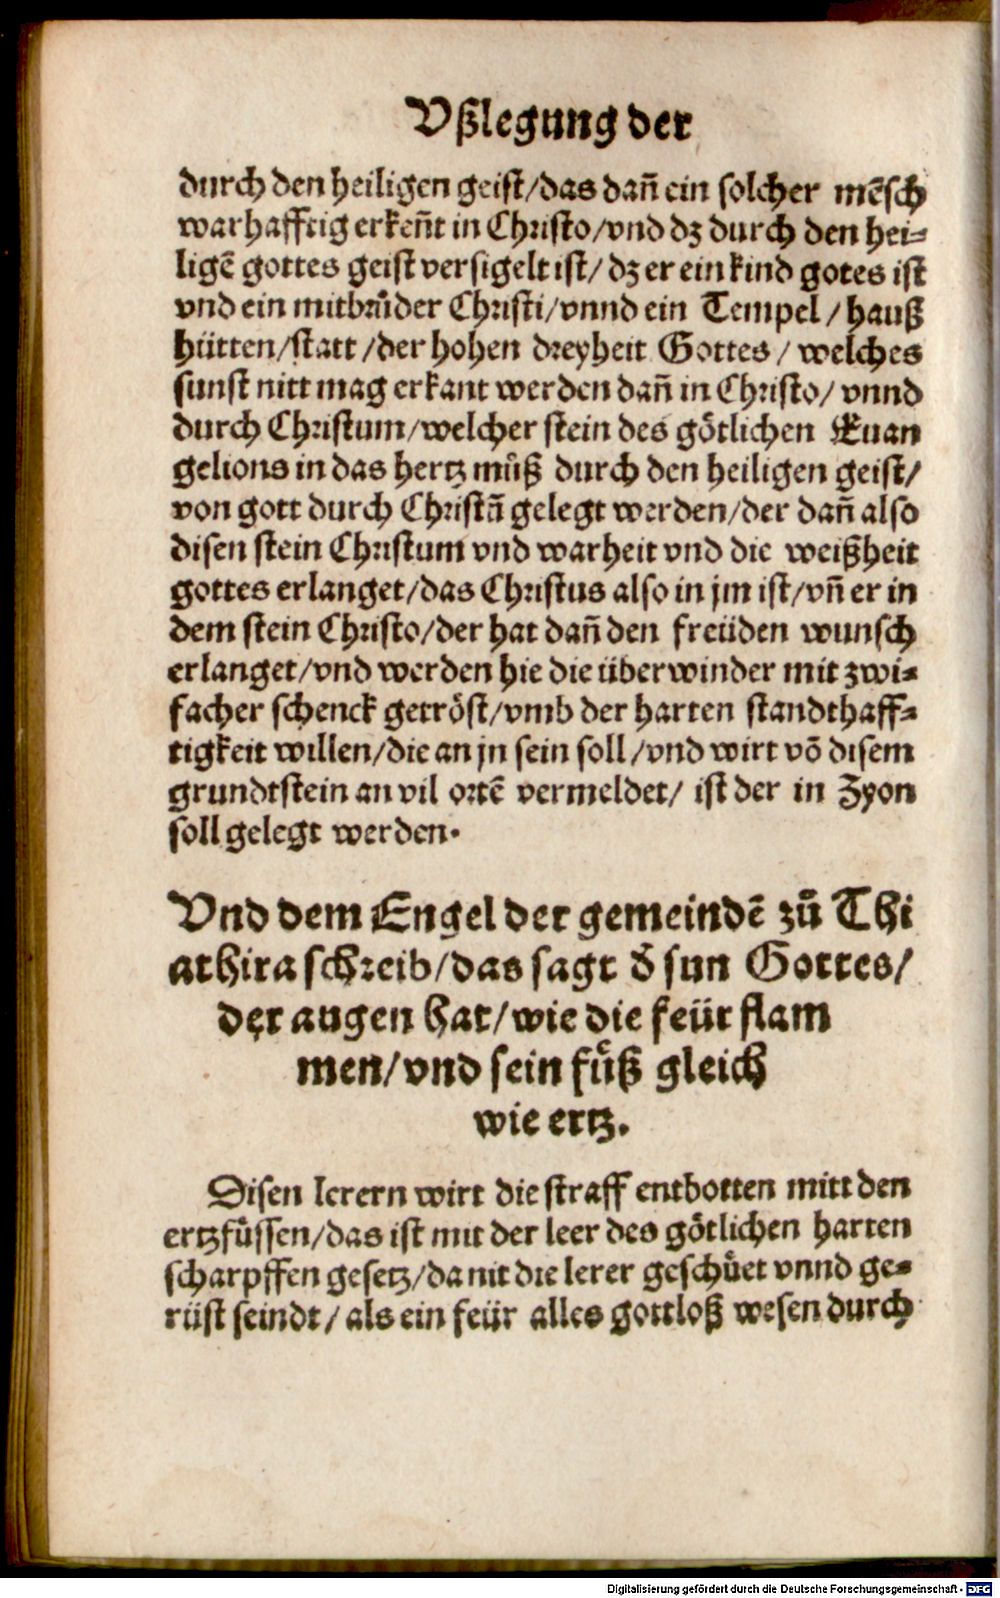 Vßlegung der
durch den heiligen geist/das dañ ein solcher mẽsch
warhafftig erkeñt in Christo/vnd dz durch den hei⸗
ligẽ gottes geist versigelt ist/dz er ein kind gotes ist
vnd ein mitbruͤder Christi/vnnd ein Tempel/hauß
hütten/statt/der hohen dreyheit Gottes/welches
sunst nitt mag erkant werden dañ in Christo/vnnd
durch Christum/welcher stein des goͤtlichen Euan
gelions in das hertz muͦß durch den heiligen geist/
von gott durch Christũ gelegt werden/der dañ also
disen stein Christum vnd warheit vnd die weißheit
gottes erlanget/das Christus also in jm ist/vñ er in
dem stein Christo/der hat dañ den freüden wunsch
erlanget/vnd werden hie die überwinder mit zwi⸗
facher schenck getröst/vmb der harten standthaff⸗
tigkeit willen/die an jn sein soll/vnd wirt võ disem
grundtstein an vil ortẽ vermeldet/ist der in Zyon
soll gelegt werden.
Vnd dem Engel der gemeindẽ zuͦ Thi
athira schreib/das sagt d̕ sun Gottes/
der augen hat/wie die feür flam
men/vnd sein fuͤß gleich
wie ertz.
Disen lerern wirt die straff entbotten mitt den
ertzfuͤssen/das ist mit der leer des goͤtlichen harten
scharpffen gesetz/da mit die lerer geschuͤet vnnd ge⸗
rüst seindt/als ein feür alles gottloß wesen durch
Digitalisierung gefördert durch die Deutsche Forschungsgemeinschaft - DFG